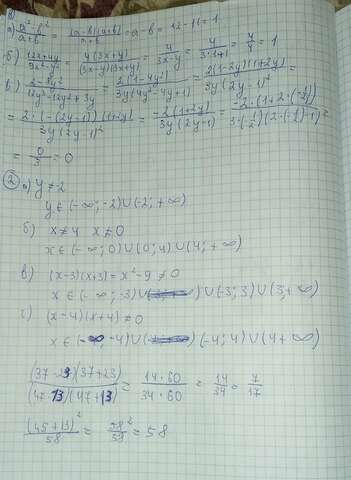 а) (a²-b²)/(a+b) = ((a-b)(a+b))/(a+b) = a-b = 12-11 = 1
б) (12x+4y)/(9x²-y²) = (4(3x+y))/((3x-y)(3x+y)) = 4/(3x-y) = 4/(3·1+1) = 4/4 = 1
в) (2-8y²)/(12y³-12y²+3y) = (2(1-4y²))/(3y(4y²-4y+1)) = (2(1-2y)(1+2y))/(3y(2y-1)²) =
= (2·(-(2y-1))(1+2y))/(3y(2y-1)²) = (-2(1+2y))/(3y(2y-1)) = (-2·(1+2·(-1/2)))/(3·(-1/2)(2·(-1/2)-1)) =
= 0/3 = 0
② а) y≠-2
y∈(-∞;-2)∪(-2;+∞)
б) x≠4 x≠0
x∈(-∞;0)∪(0;4)∪(4;+∞)
в) (x-3)(x+3) = x²-9≠0
x∈(-∞;-3)∪ )∪(-3;3)∪(3;+∞
г) (x-4)(x+4)≠0
x∈(-∞;-4)∪ (-4;4)∪(4+∞)
((37-23)(37+23))/((47 13)(47+13)) = (14·60)/(34·60) = 14/34 = 7/17
(45+13)²/58 = 58²/58 = 58